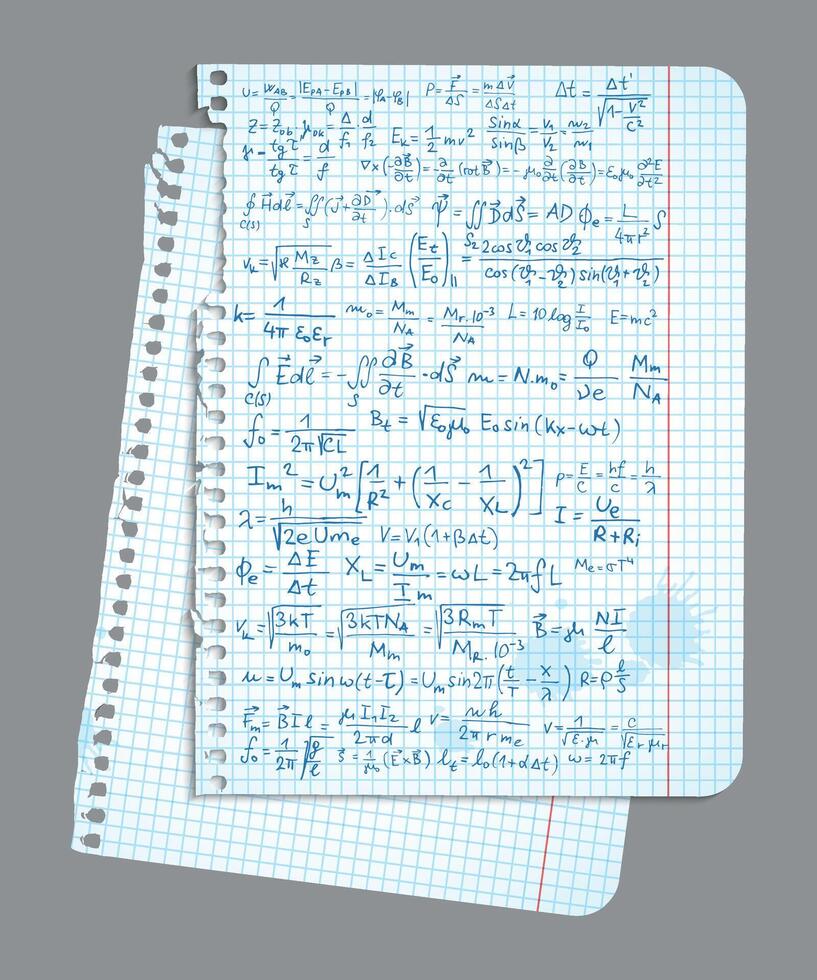 U = W_AB/Q = |E_PA − E_PB|/Q = |φ_A − φ_B|   P = F⃗/ΔS = mΔV⃗/ΔSΔt   Δt = Δt'/√(1 − V²/C²)
Z = Z_ob · γ_ok = Δ/f₁ · d/f₂   E_k = ½ mv²   Sinα/Sinβ = V₁/V₂ = n₂/n₁
γ = tg τ'/tg τ = d/f   ∇×(−∂B⃗/∂t) = −∂/∂t (rot B⃗) = −μ₀ ∂/∂t (∂B⃗/∂t) = ε₀μ₀ ∂²E/∂t²
∮_C(S) H⃗dℓ⃗ = ∬_S (J⃗ + ∂D⃗/∂t) · dS⃗   Ψ⃗ = ∬D⃗dS⃗ = AD   Φe = L/4πr² S
v_k = √(ϰ M_Z/R_Z)   β = ΔI_C/ΔI_B   (E_t/E_0)_|| = 2cosϑ₁cosϑ₂/cos(ϑ₁ − ϑ₂)sin(ϑ₁ + ϑ₂)
k = 1/4π ε₀ε_r   m₀ = M_m/N_A = M_r·10⁻³/N_A   L = 10 log I/I₀   E = mc²
∫_C(S) E⃗dℓ⃗ = −∬_S ∂B⃗/∂t · dS⃗   m = N·m₀ = Q/νe M_m/N_A
f₀ = 1/2π√CL   B_t = √ε₀μ₀ E₀ sin(kx − ωt)
I_m² = U_m² [1/R² + (1/X_C − 1/X_L)²]   p = E/c = hf/c = h/λ
λ = h/√2eUm_e   V = V₁(1 + βΔt)   I = U_e/R + R_i
Φe = ΔE/Δt   X_L = U_m/I_m = ωL = 2πfL   M_e = σT⁴
v_k = √(3kT/m₀) = √(3kTN_A/M_m) = √(3R_mT/M_R·10⁻³)   B⃗ = μ NI/ℓ
u = U_m sin ω(t − τ) = U_m sin 2π(t/T − x/λ)   R = ρ ℓ/S
F⃗_m = B⃗Iℓ = μI₁I₂/2πd ℓ   v = nh/2πrm_e   v = 1/√ε·μ = c/√ε_rμ_r
f₀ = 1/2π √(g/ℓ)   S⃗ = 1/μ₀ (E⃗×B⃗)   ℓ_t = ℓ₀(1 + αΔt)   ω = 2πf